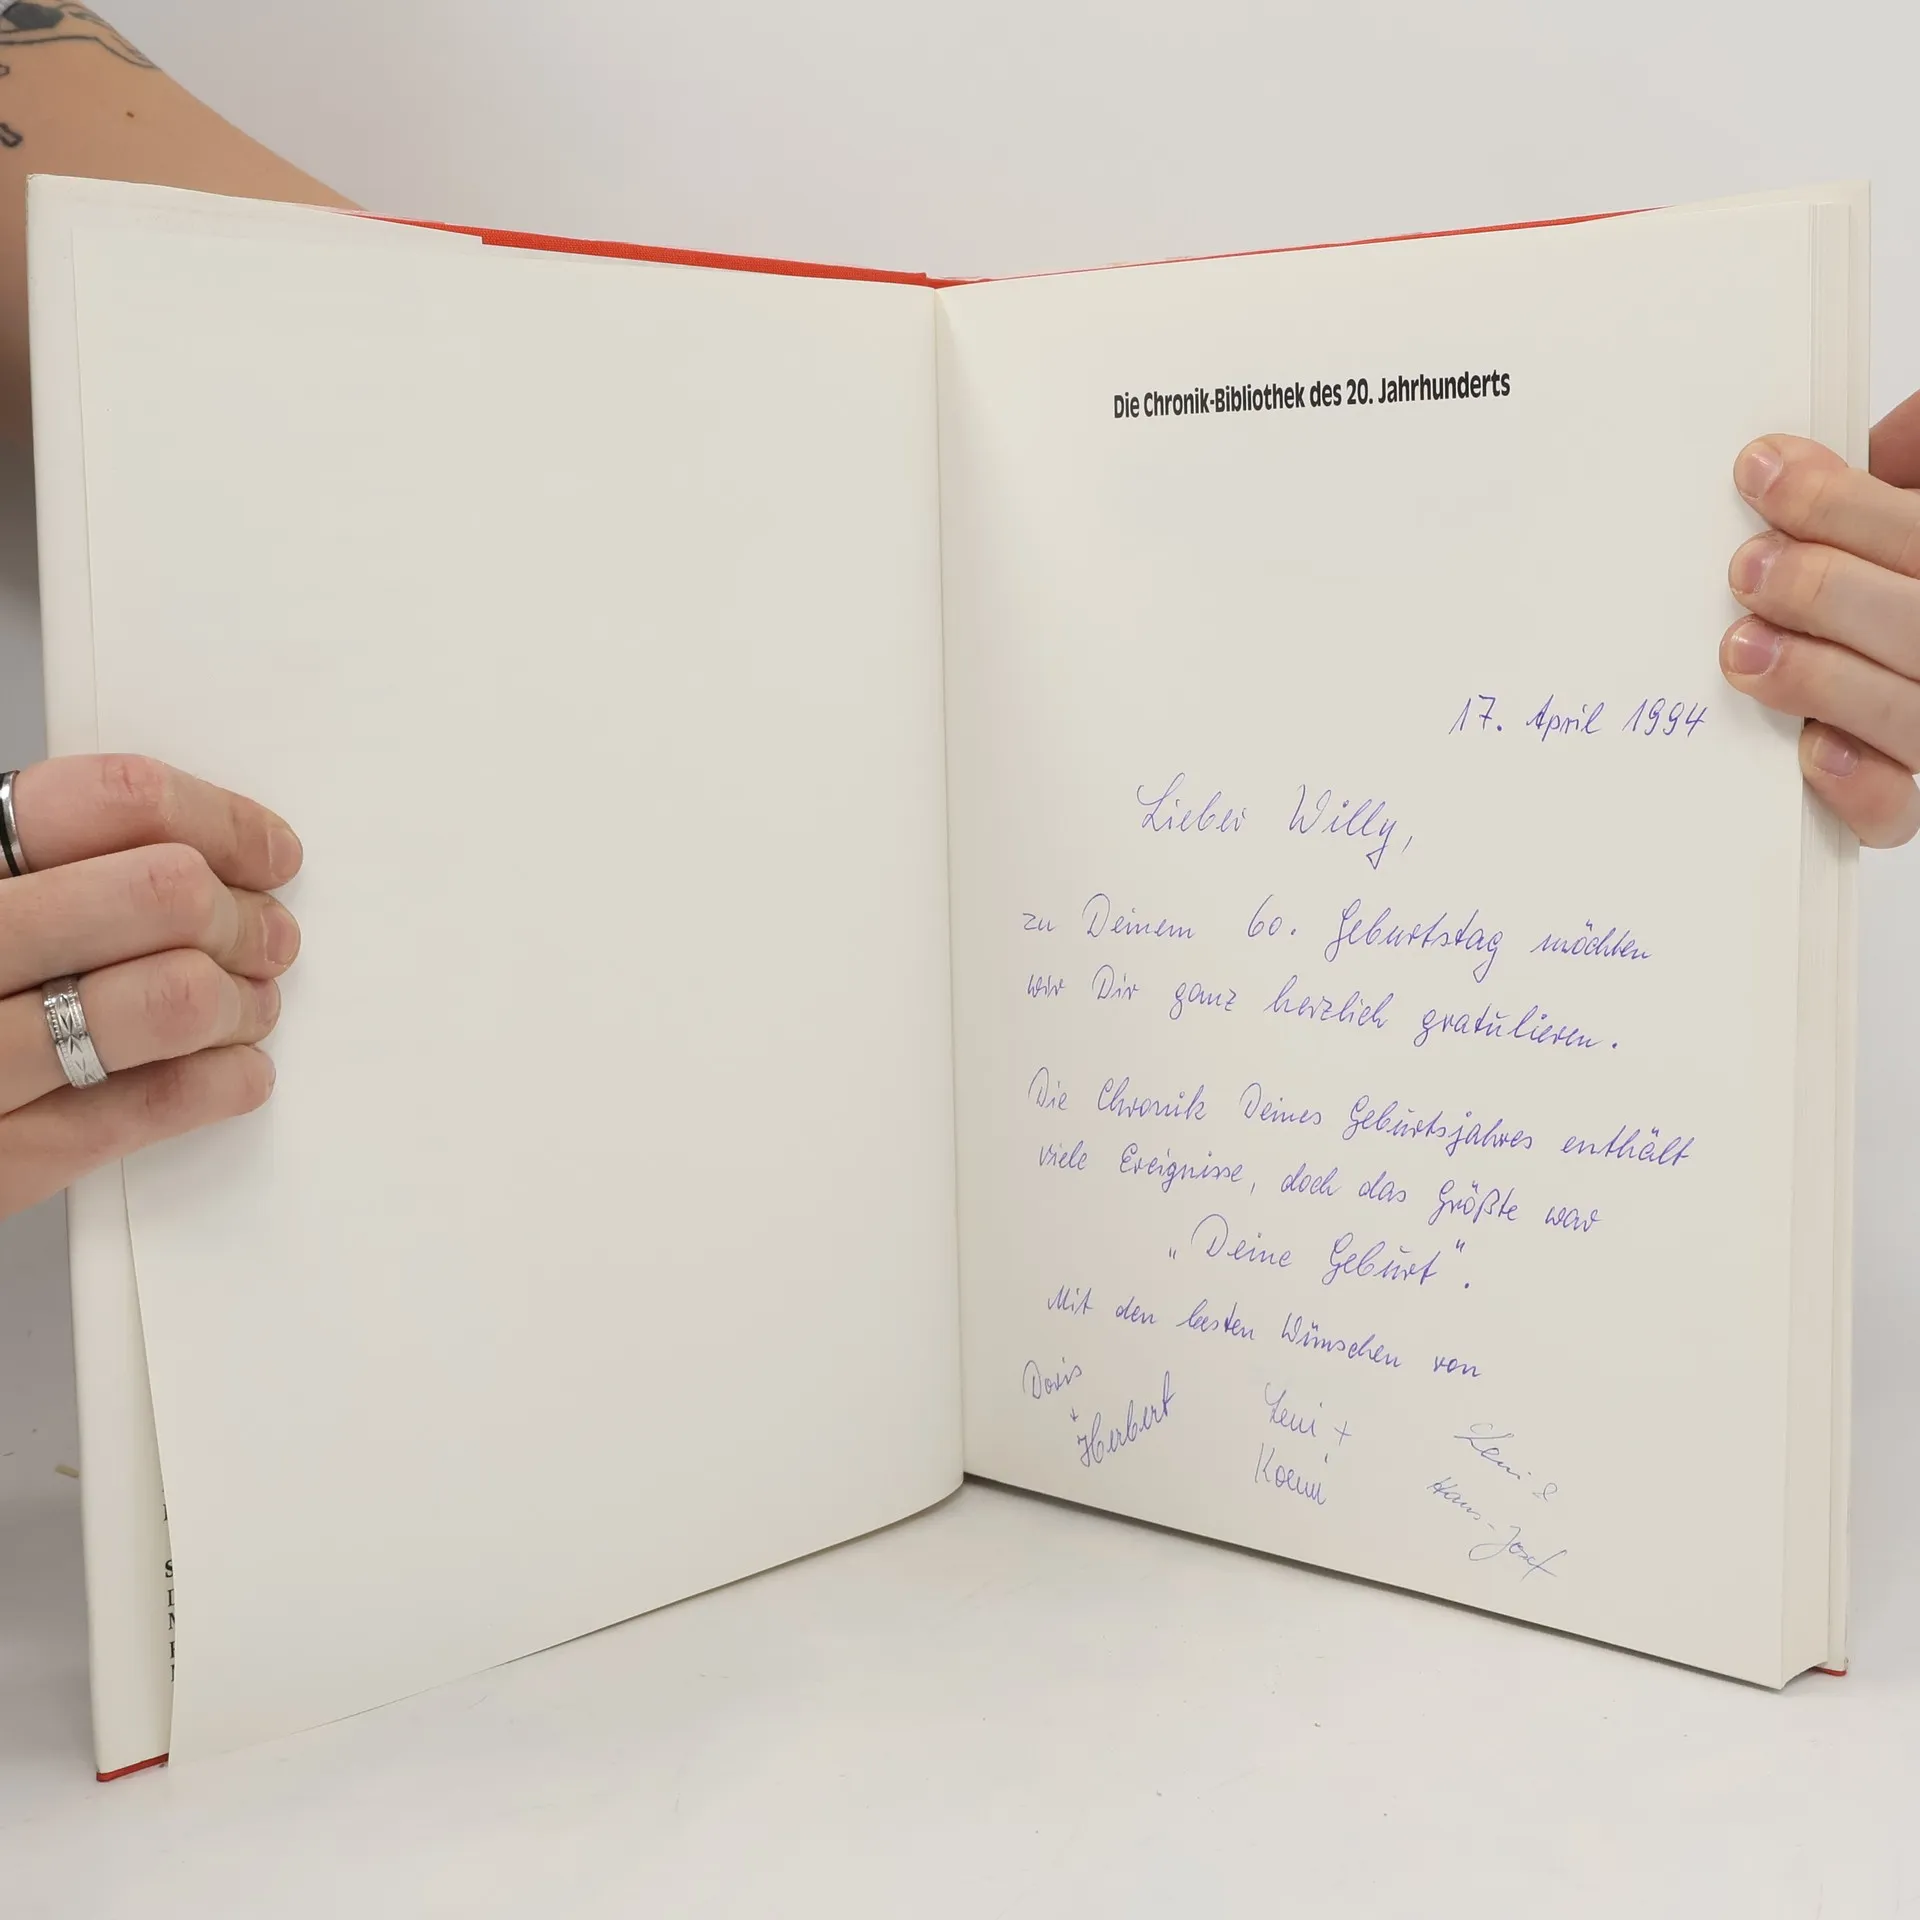 Die Chronik-Bibliothek des 20. Jahrhunderts
17. April 1994
Lieber Willy,
zu Deinem 60. Geburtstag möchten
wir Dir ganz herzlich gratulieren.
Die Chronik Deines Geburtsjahres enthält
viele Ereignisse, doch das Größte war
„Deine Geburt".
Mit den besten Wünschen von
Doris
+ Herbert
Leni +
Leni &
Hans-Josef